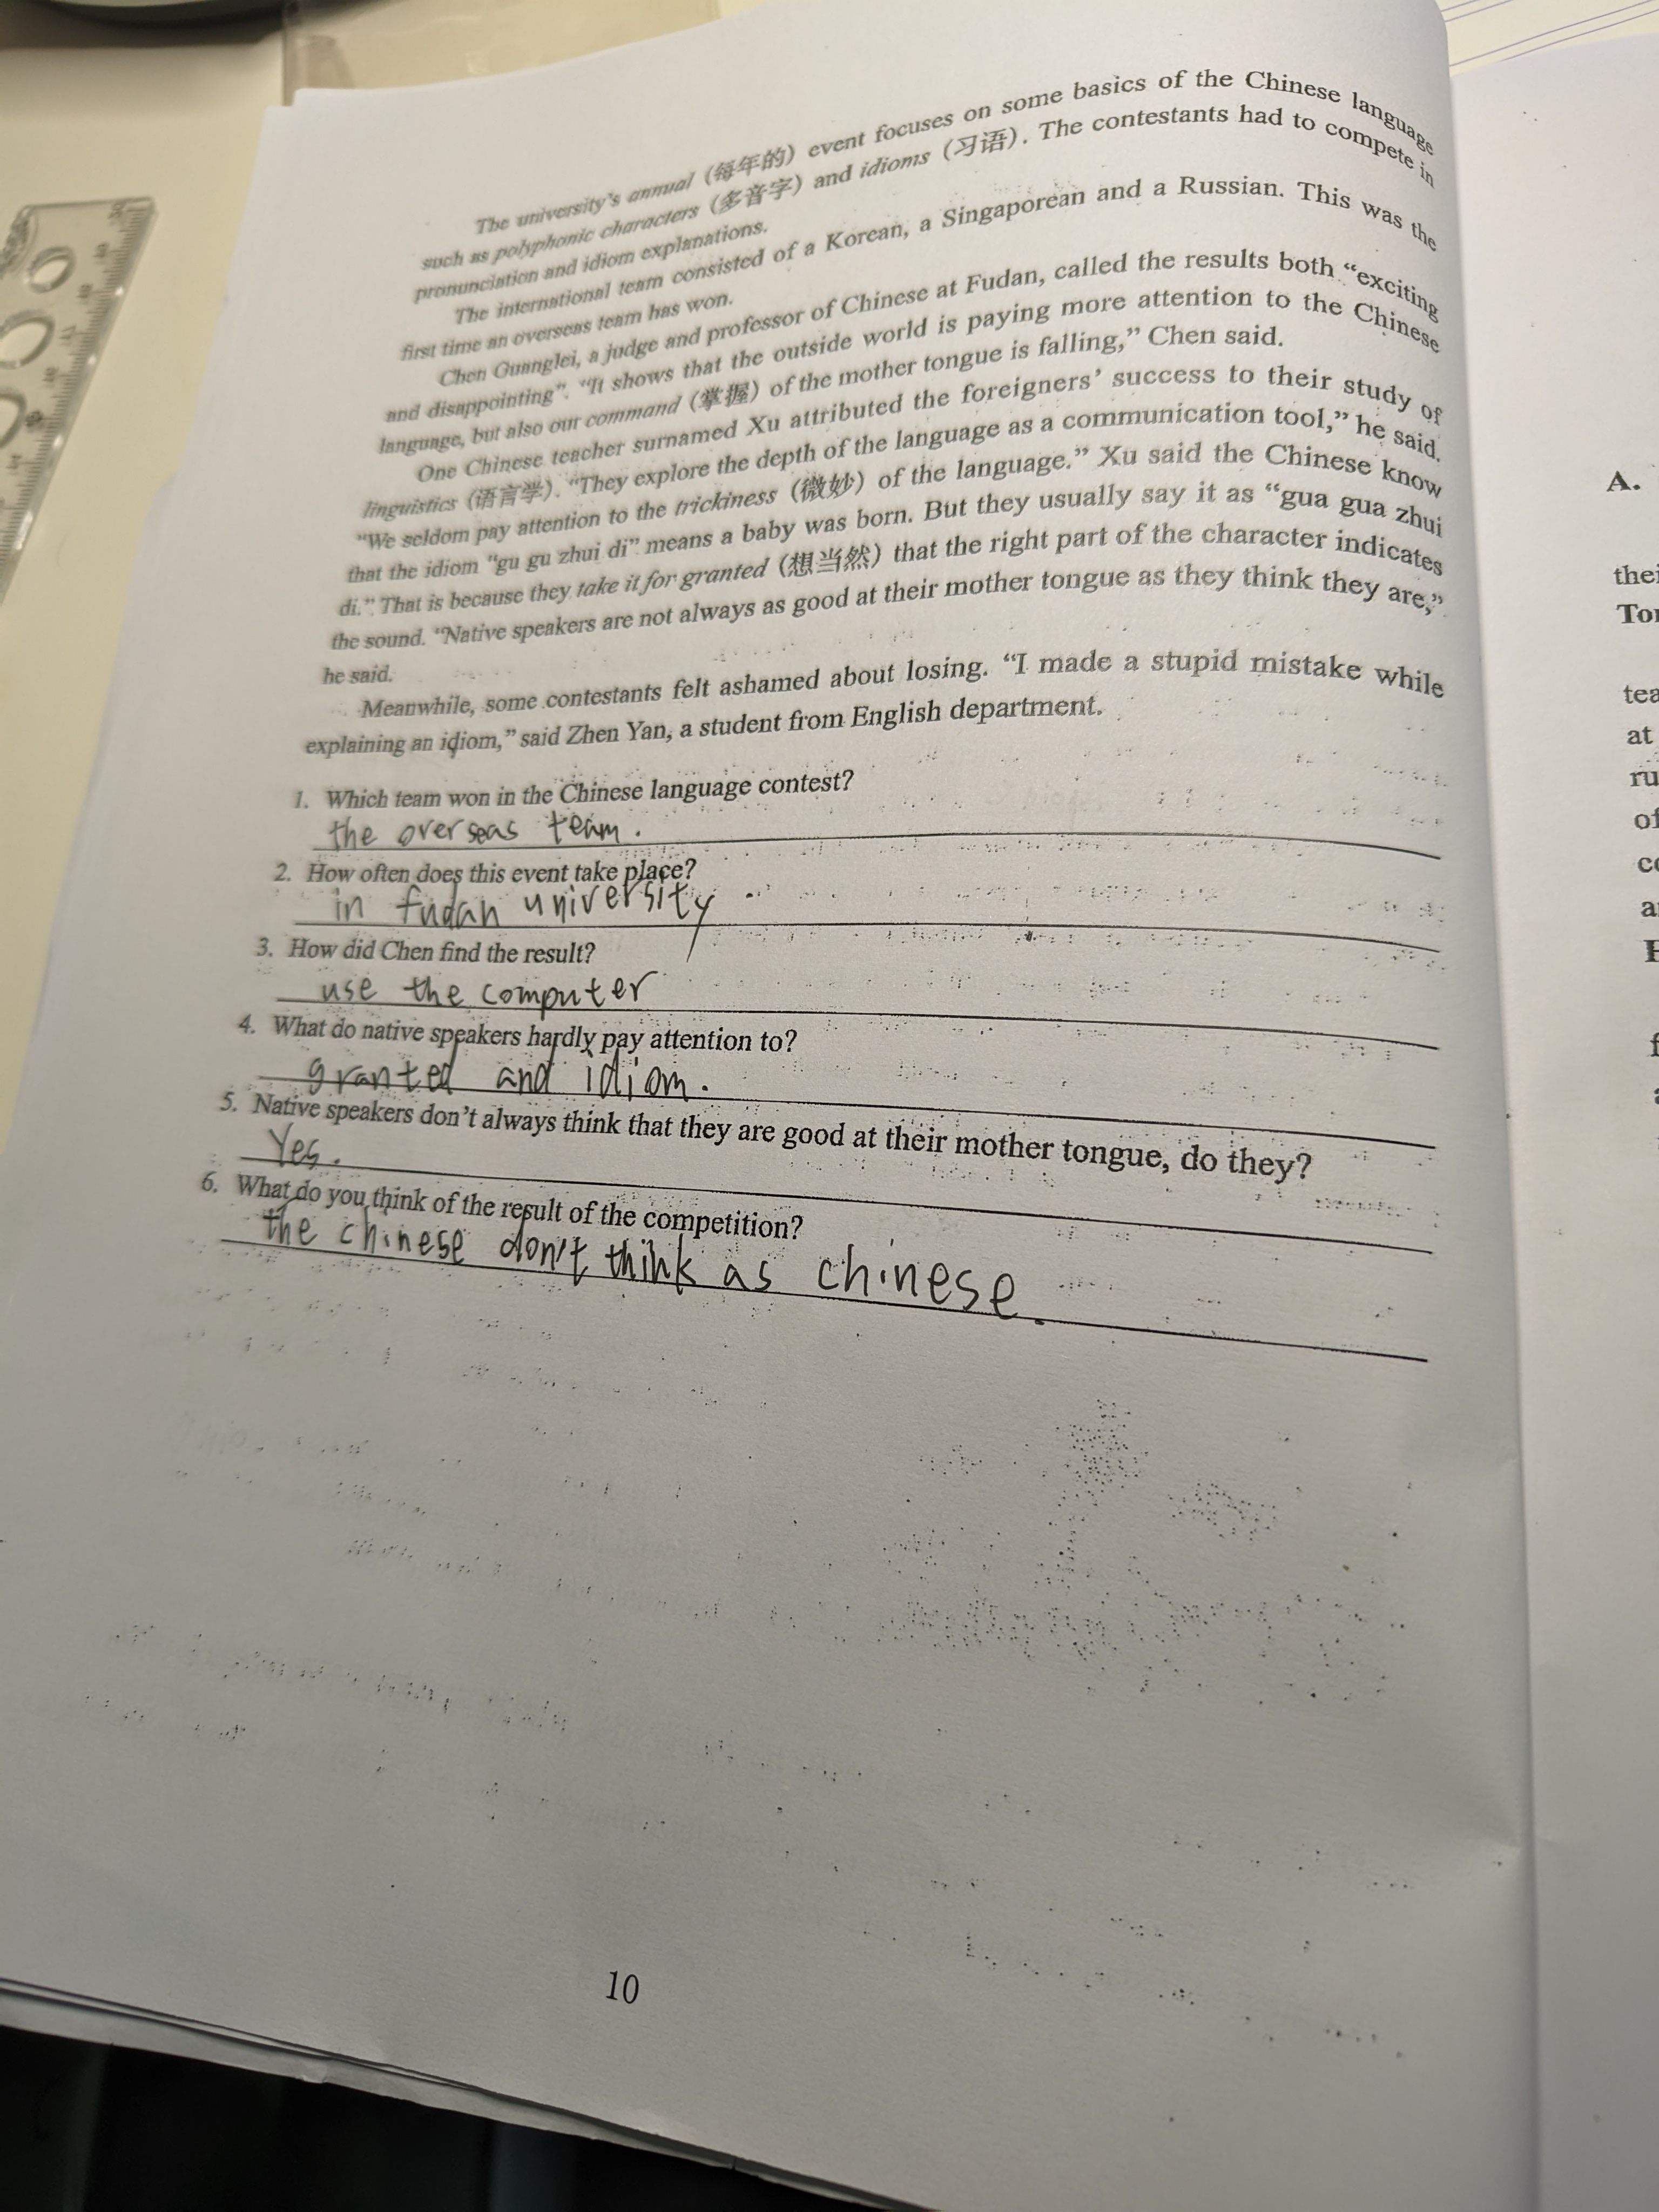 The university's annual (每年的) event focuses on some basics of the Chinese language
such as polyphonic characters (多音字) and idioms (习语). The contestants had to compete in
pronunciation and idiom explanations.
The international team consisted of a Korean, a Singaporean and a Russian. This was the
first time an overseas team has won.
Chen Guanglei, a judge and professor of Chinese at Fudan, called the results both “exciting
and disappointing”. “It shows that the outside world is paying more attention to the Chinese
language, but also our command (掌握) of the mother tongue is falling,” Chen said.
One Chinese teacher surnamed Xu attributed the foreigners' success to their study of
linguistics (语言学). “They explore the depth of the language as a communication tool,” he said.
“We seldom pay attention to the trickiness (微妙) of the language.” Xu said the Chinese know
that the idiom “gu gu zhui di” means a baby was born. But they usually say it as “gua gua zhui
di.” That is because they take it for granted (想当然) that the right part of the character indicates
the sound. “Native speakers are not always as good at their mother tongue as they think they are,”
he said.
Meanwhile, some contestants felt ashamed about losing. “I made a stupid mistake while
explaining an idiom,” said Zhen Yan, a student from English department.
1. Which team won in the Chinese language contest?
the overseas team.
2. How often does this event take place?
in fudan university.
3. How did Chen find the result?
use the computer
4. What do native speakers hardly pay attention to?
granted and idiom.
5. Native speakers don't always think that they are good at their mother tongue, do they?
Yes.
6. What do you think of the result of the competition?
the chinese don't think as chinese.
10
A.
at